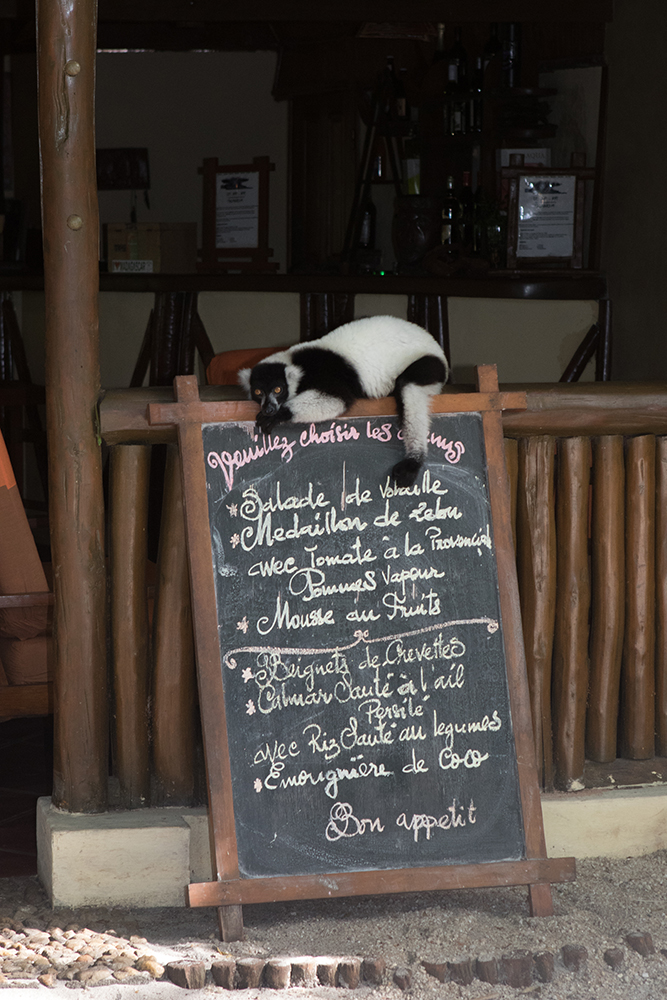 Veuillez choisir les
* Salade de Volaille
* Medaillon de Zebu
avec Tomate à la Provençal
Pommes Vapeur
* Mousse au Fruits
* Beignets de Crevettes
* Calmar Sauté à l'ail
Persilé
avec Riz Sauté au legumes
* Emougnière de Coco
Bon appetit